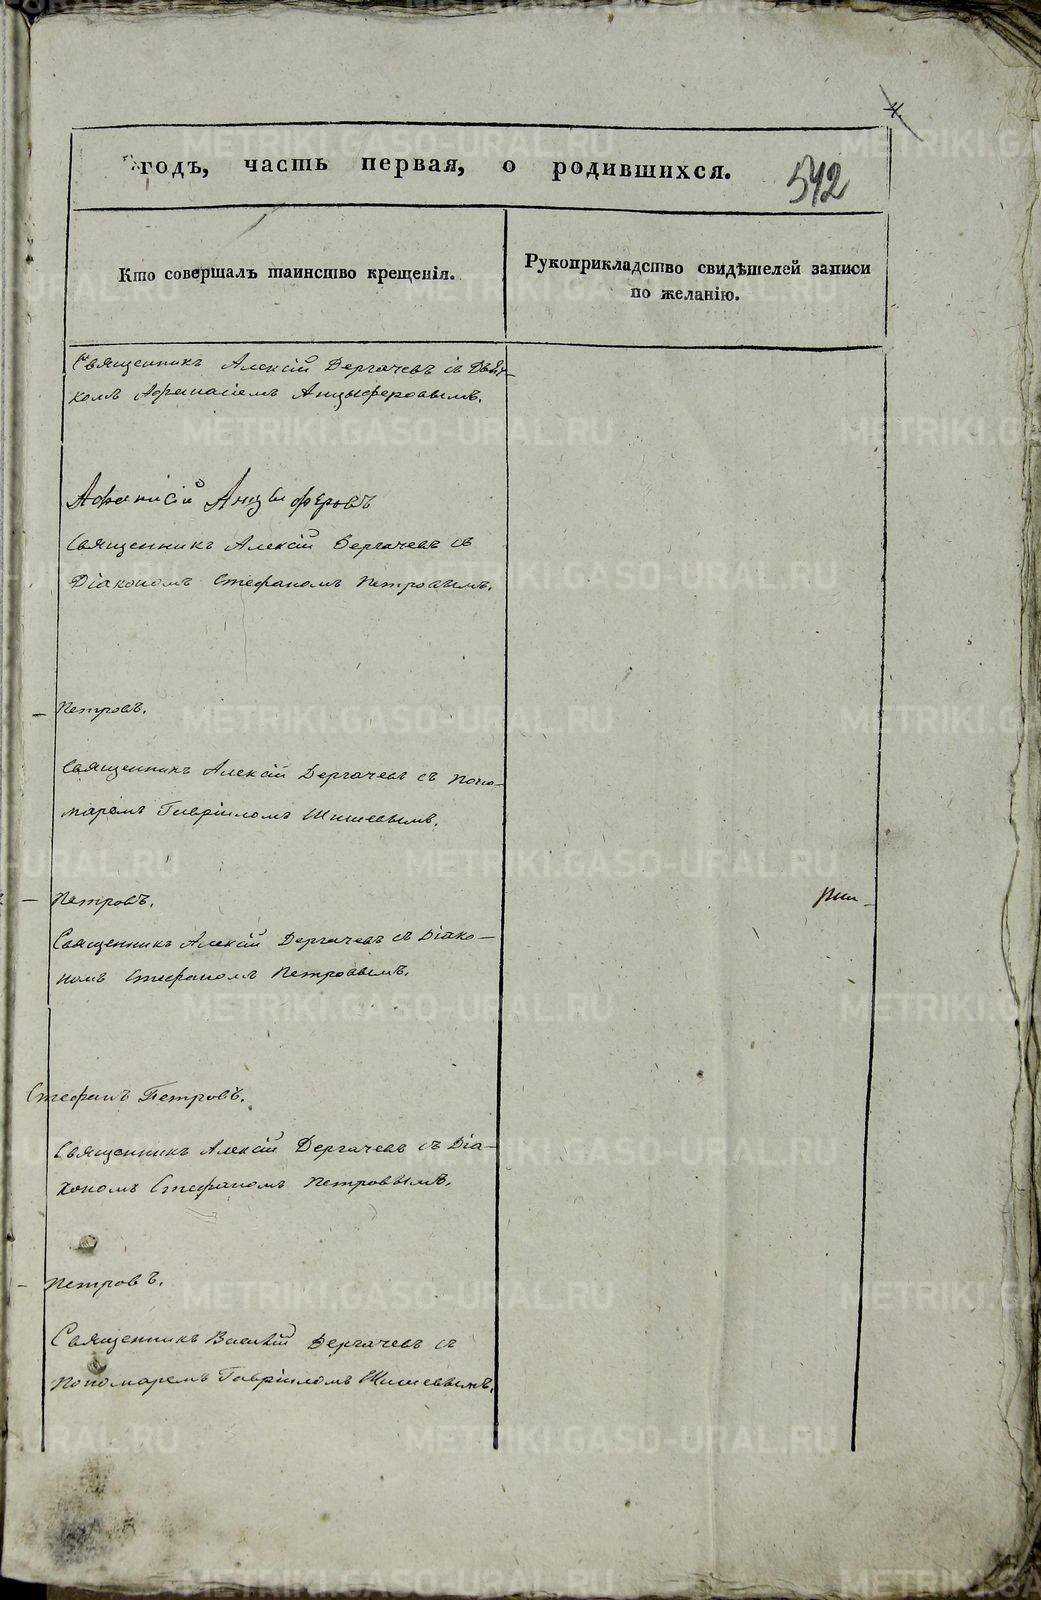 4.
годъ, часть первая, о родившихся. 542
Кто совершалъ таинство крещенія.
Рукоприкладство свидѣтелей записи
по желанію.
Священникъ Алексій Дергачевъ съ Дьяч-
комъ Афанасіемъ Анцыферовымъ.
Афанасій Анцыферовъ
Священникъ Алексій Дергачевъ съ
Діакономъ Стефаномъ Петровымъ.
– Петровъ.
Священникъ Алексій Дергачевъ съ Поно-
маремъ Гавріиломъ Шишевымъ.
– Петровъ.
Священникъ Алексій Дергачевъ съ Діако-
номъ Стефаномъ Петровымъ.
Стефанъ Петровъ.
Священникъ Алексій Дергачевъ съ Діа-
кономъ Стефаномъ Петровымъ.
– Петровъ.
Священникъ Василій Дергачевъ съ
Пономаремъ Гавріиломъ Шишевымъ.
METRIKI.GASO-URAL.RU